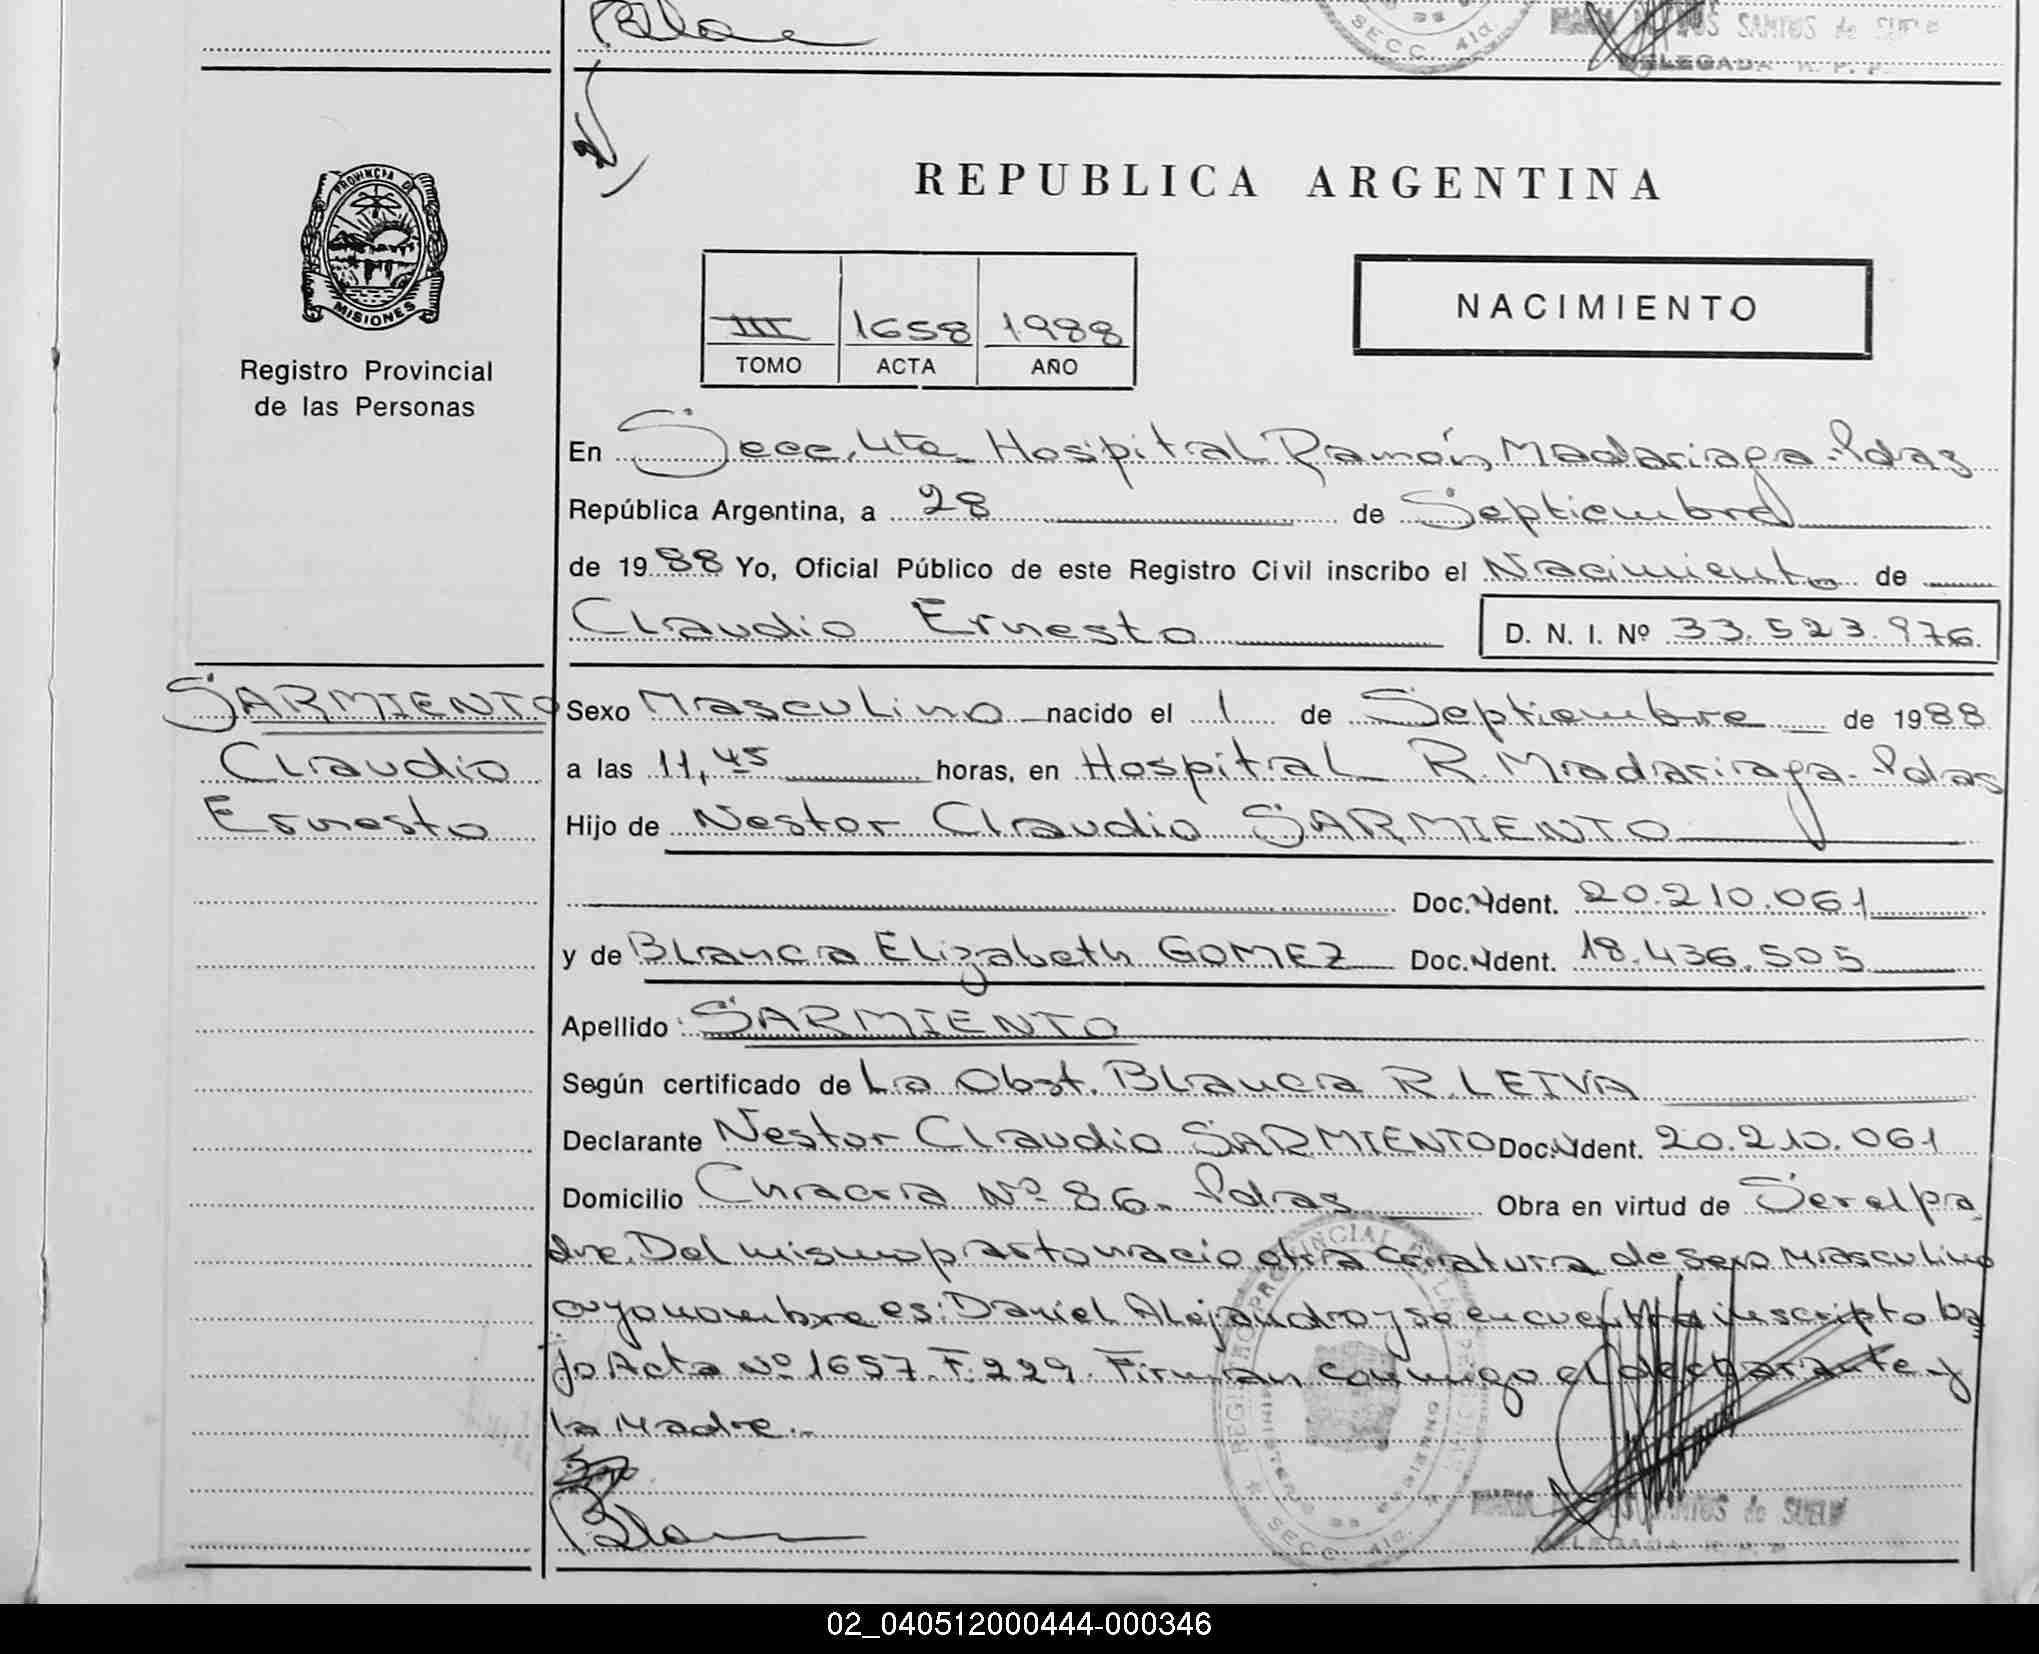 SECC. 4ta.
SANTOS de SUELO
DELEGADA R. P. P.
PROVINCIA DE
MISIONES
Registro Provincial
de las Personas
REPUBLICA ARGENTINA
III 1658 1988
TOMO ACTA AÑO
NACIMIENTO
En Secc. 4ta. Hospital Ramón Madariaga - Pdas
República Argentina, a 28 de Septiembre
de 1988 Yo, Oficial Público de este Registro Civil inscribo el Nacimiento de
Claudio Ernesto D. N. I. Nº 33.523.976.
SARMIENTO
Claudio
Ernesto
Sexo Masculino nacido el 1 de Septiembre de 1988
a las 11,45 horas, en Hospital R. Madariaga - Pdas
Hijo de Nestor Claudio SARMIENTO
Doc. Ident. 20.210.061
y de Blanca Elizabeth GOMEZ Doc. Ident. 18.436.505
Apellido: SARMIENTO
Según certificado de La Obst. Blanca R. LEIVA
Declarante Nestor Claudio SARMIENTO Doc. Ident. 20.210.061
Domicilio Nº 86 - Pdas Obra en virtud de Ser el pa
dre. Del mismo parto nacio otra criatura de sexo Masculino
cuyo nombre es: Daniel Alejandro y se encuentra inscripto ba
jo Acta Nº 1657. F. 229. Firman conmigo el declarante y
la Madre.-
REGISTRO PROVINCIAL DE LAS PERSONAS
MINISTERIO DE GOBIERNO
SECC. 4ta.
SANTOS de SUELO
DELEGADA R. P. P.
02_040512000444-000346